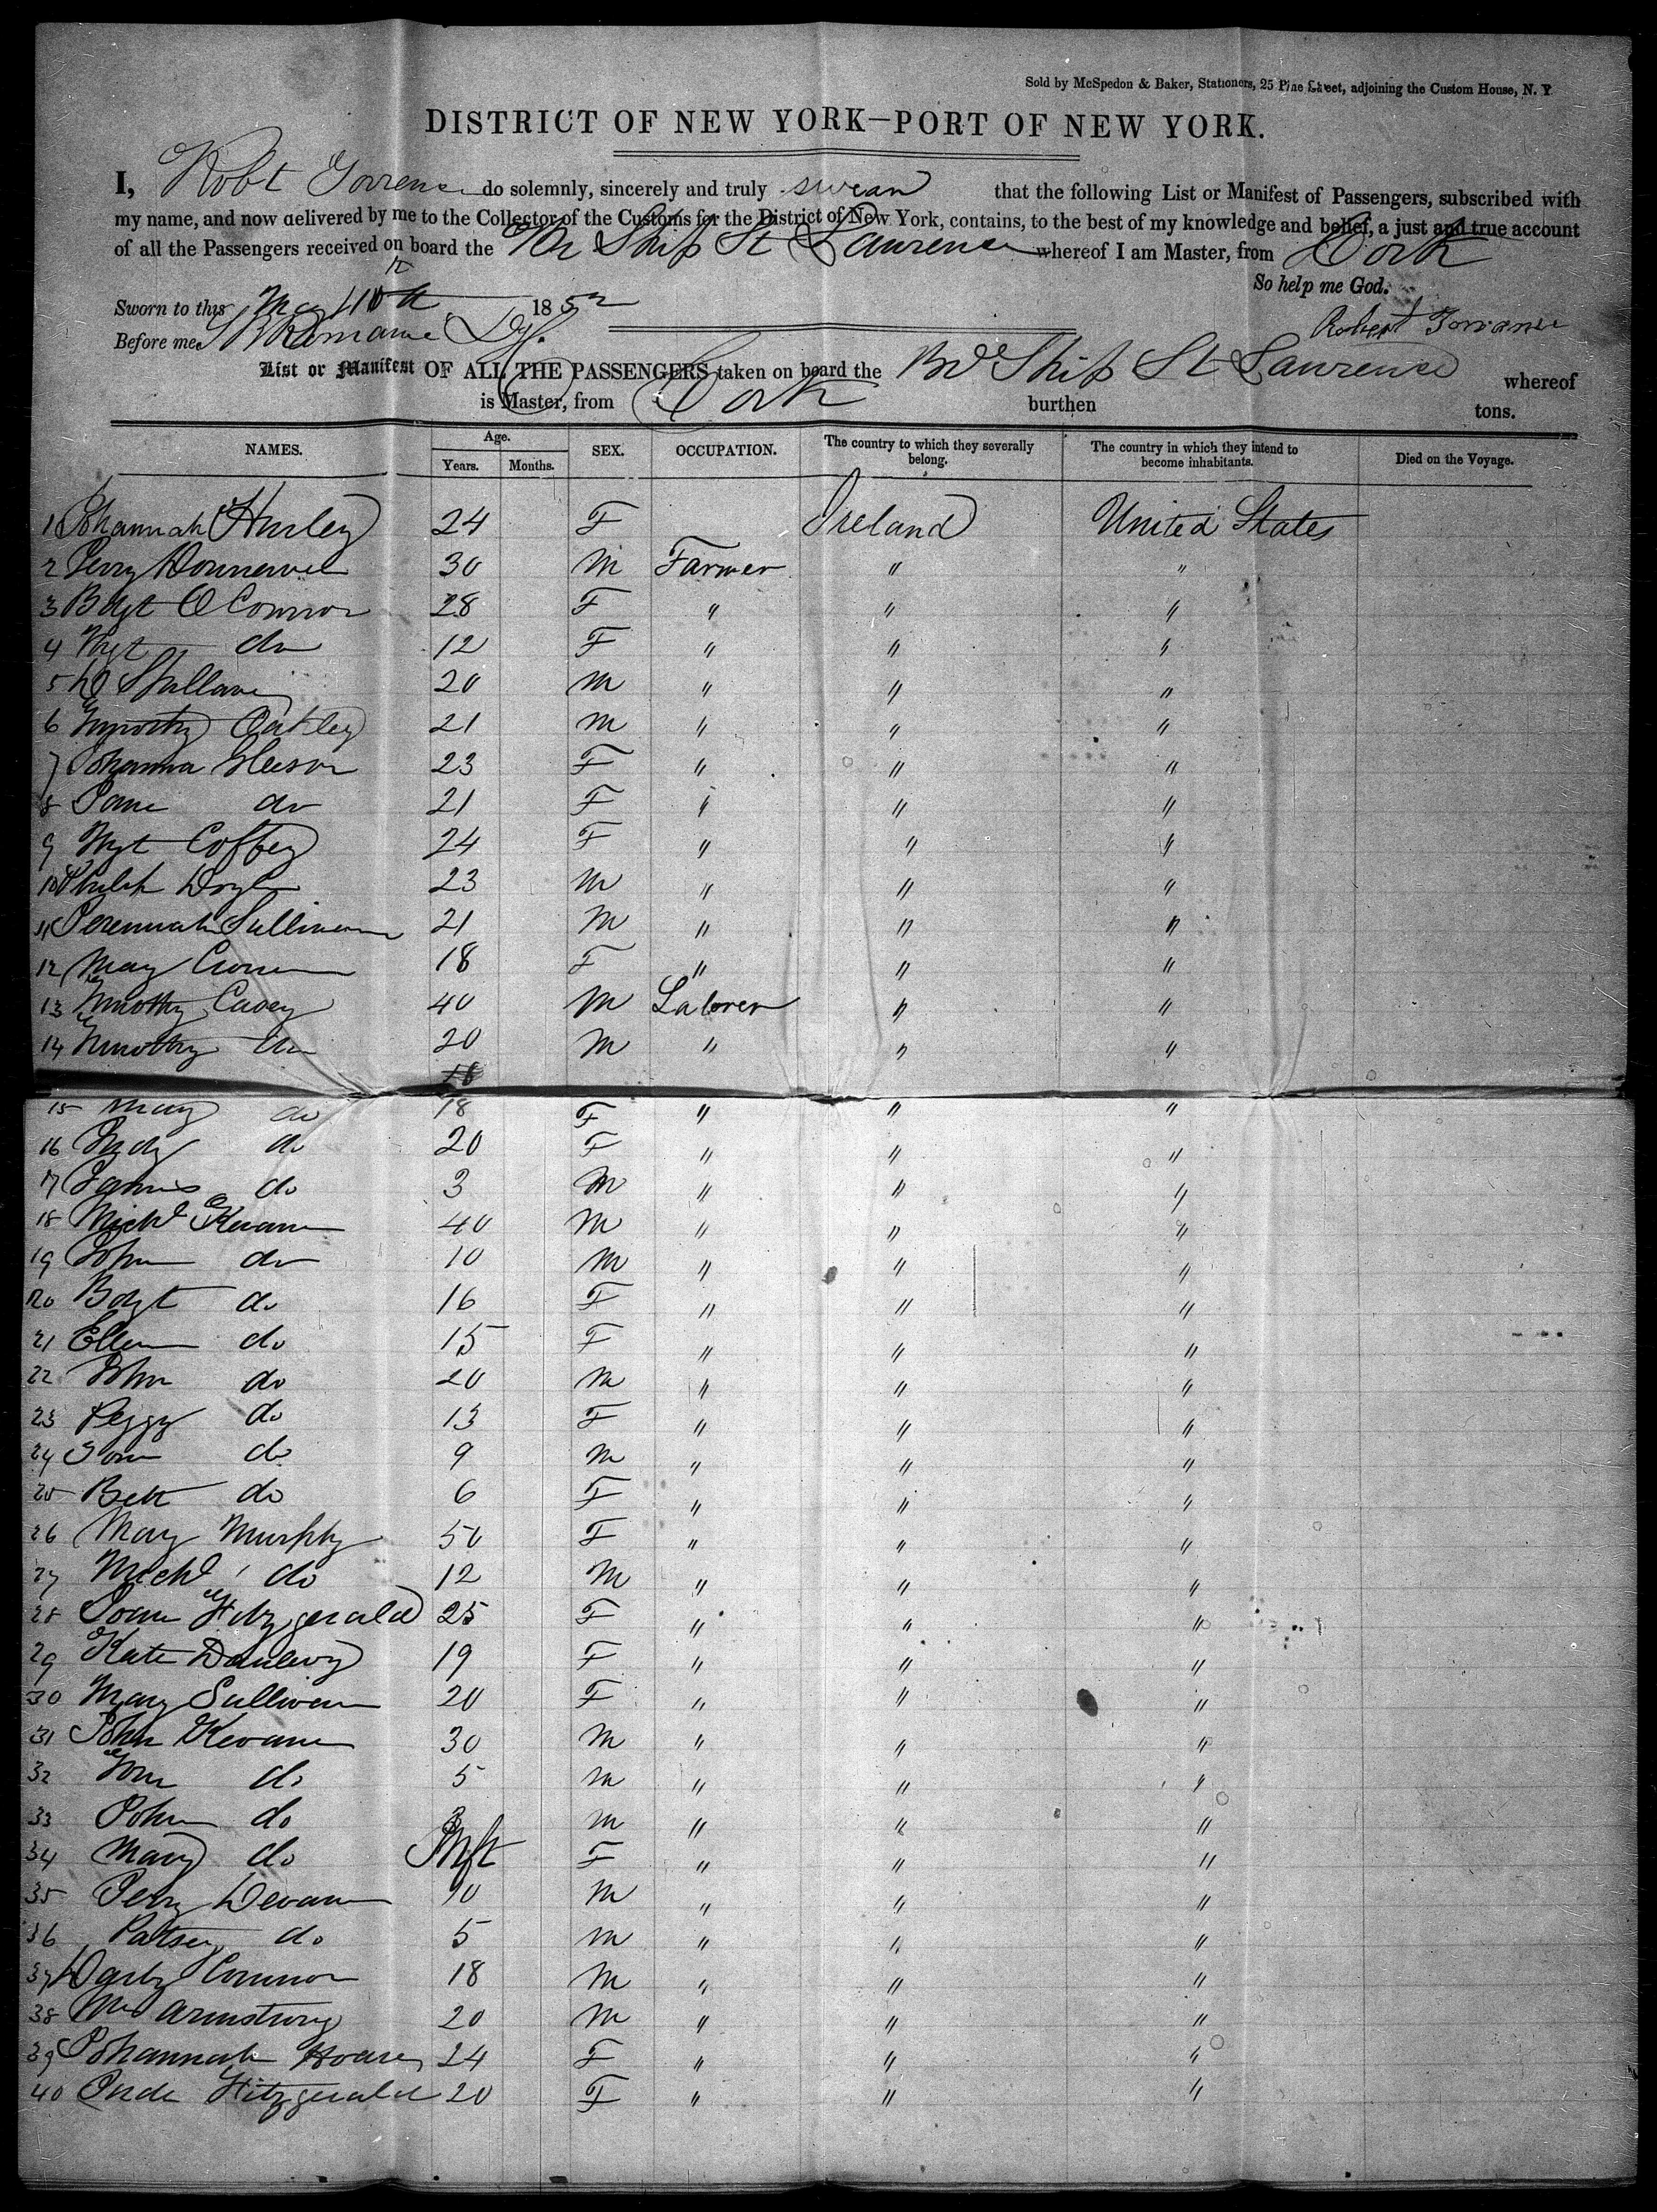 Sold by McSpedon & Baker, Stationers, 25 Pine Street, adjoining the Custom House, N. Y.
DISTRICT OF NEW YORK—PORT OF NEW YORK.
I, Robt Torrence do solemnly, sincerely and truly swear that the following List or Manifest of Passengers, subscribed with
my name, and now delivered by me to the Collector of the Customs for the District of New York, contains, to the best of my knowledge and belief, a just and true account
of all the Passengers received on board the Br Ship St Lawrence whereof I am Master, from Cork
So help me God.
Sworn to this May 1852
Before me Robert Torrance
List or Manifest OF ALL THE PASSENGERS taken on board the Br Ship St Lawrence whereof
is Master, from Cork burthen tons.
NAMES. Age. SEX. OCCUPATION. The country to which they severally belong. The country in which they intend to become inhabitants. Died on the Voyage.
Years. Months.
1 Johannah Hurley 24 F Ireland United States
2 Jerry 30 M Farmer " "
3 Bdgt O Connor 28 F " " "
4 Mgt do 12 F " " "
5 D Sullavin 20 M " " "
6 Timothy Oakley 21 M " " "
7 Johanna Gleeson 23 F " " "
8 Jane do 21 F " " "
9 Mgt Coffey 24 F " " "
10 Philip Doyle 23 M " " "
11 Jeremiah Sullivan 21 M " " "
12 Mary 18 F " " "
13 Timothy Casey 40 M Laborer " "
14 Timothy do 20 M " " "
18
15 Mary do 18 F " " "
16 Judy do 20 F " " "
17 James do 3 M " " "
18 Michl Kevane 40 M " " "
19 John do 10 M " " "
20 Bdgt do 16 F " " "
21 Ellen do 15 F " " "
22 John do 20 M " " "
23 Peggy do 13 F " " "
24 Tom do 9 M " " "
25 Bett do 6 F " " "
26 Mary Murphy 50 F " " "
27 Michl do 12 M " " "
28 Joan Fitzgerald 25 F " " "
29 Kate Dunlevy 19 F " " "
30 Mary Sullivan 20 F " " "
31 John Kevane 30 M " " "
32 Tom do 5 M " " "
33 John do 3 M " " "
34 Mary do Inft F " " "
35 Jerry Devane 10 M " " "
36 Patsey do 5 M " " "
37 Darby Connor 18 M " " "
38 Wm Armstrong 20 M " " "
39 Johannah Hoare 24 F " " "
40 Fitzgerald 20 F " " "